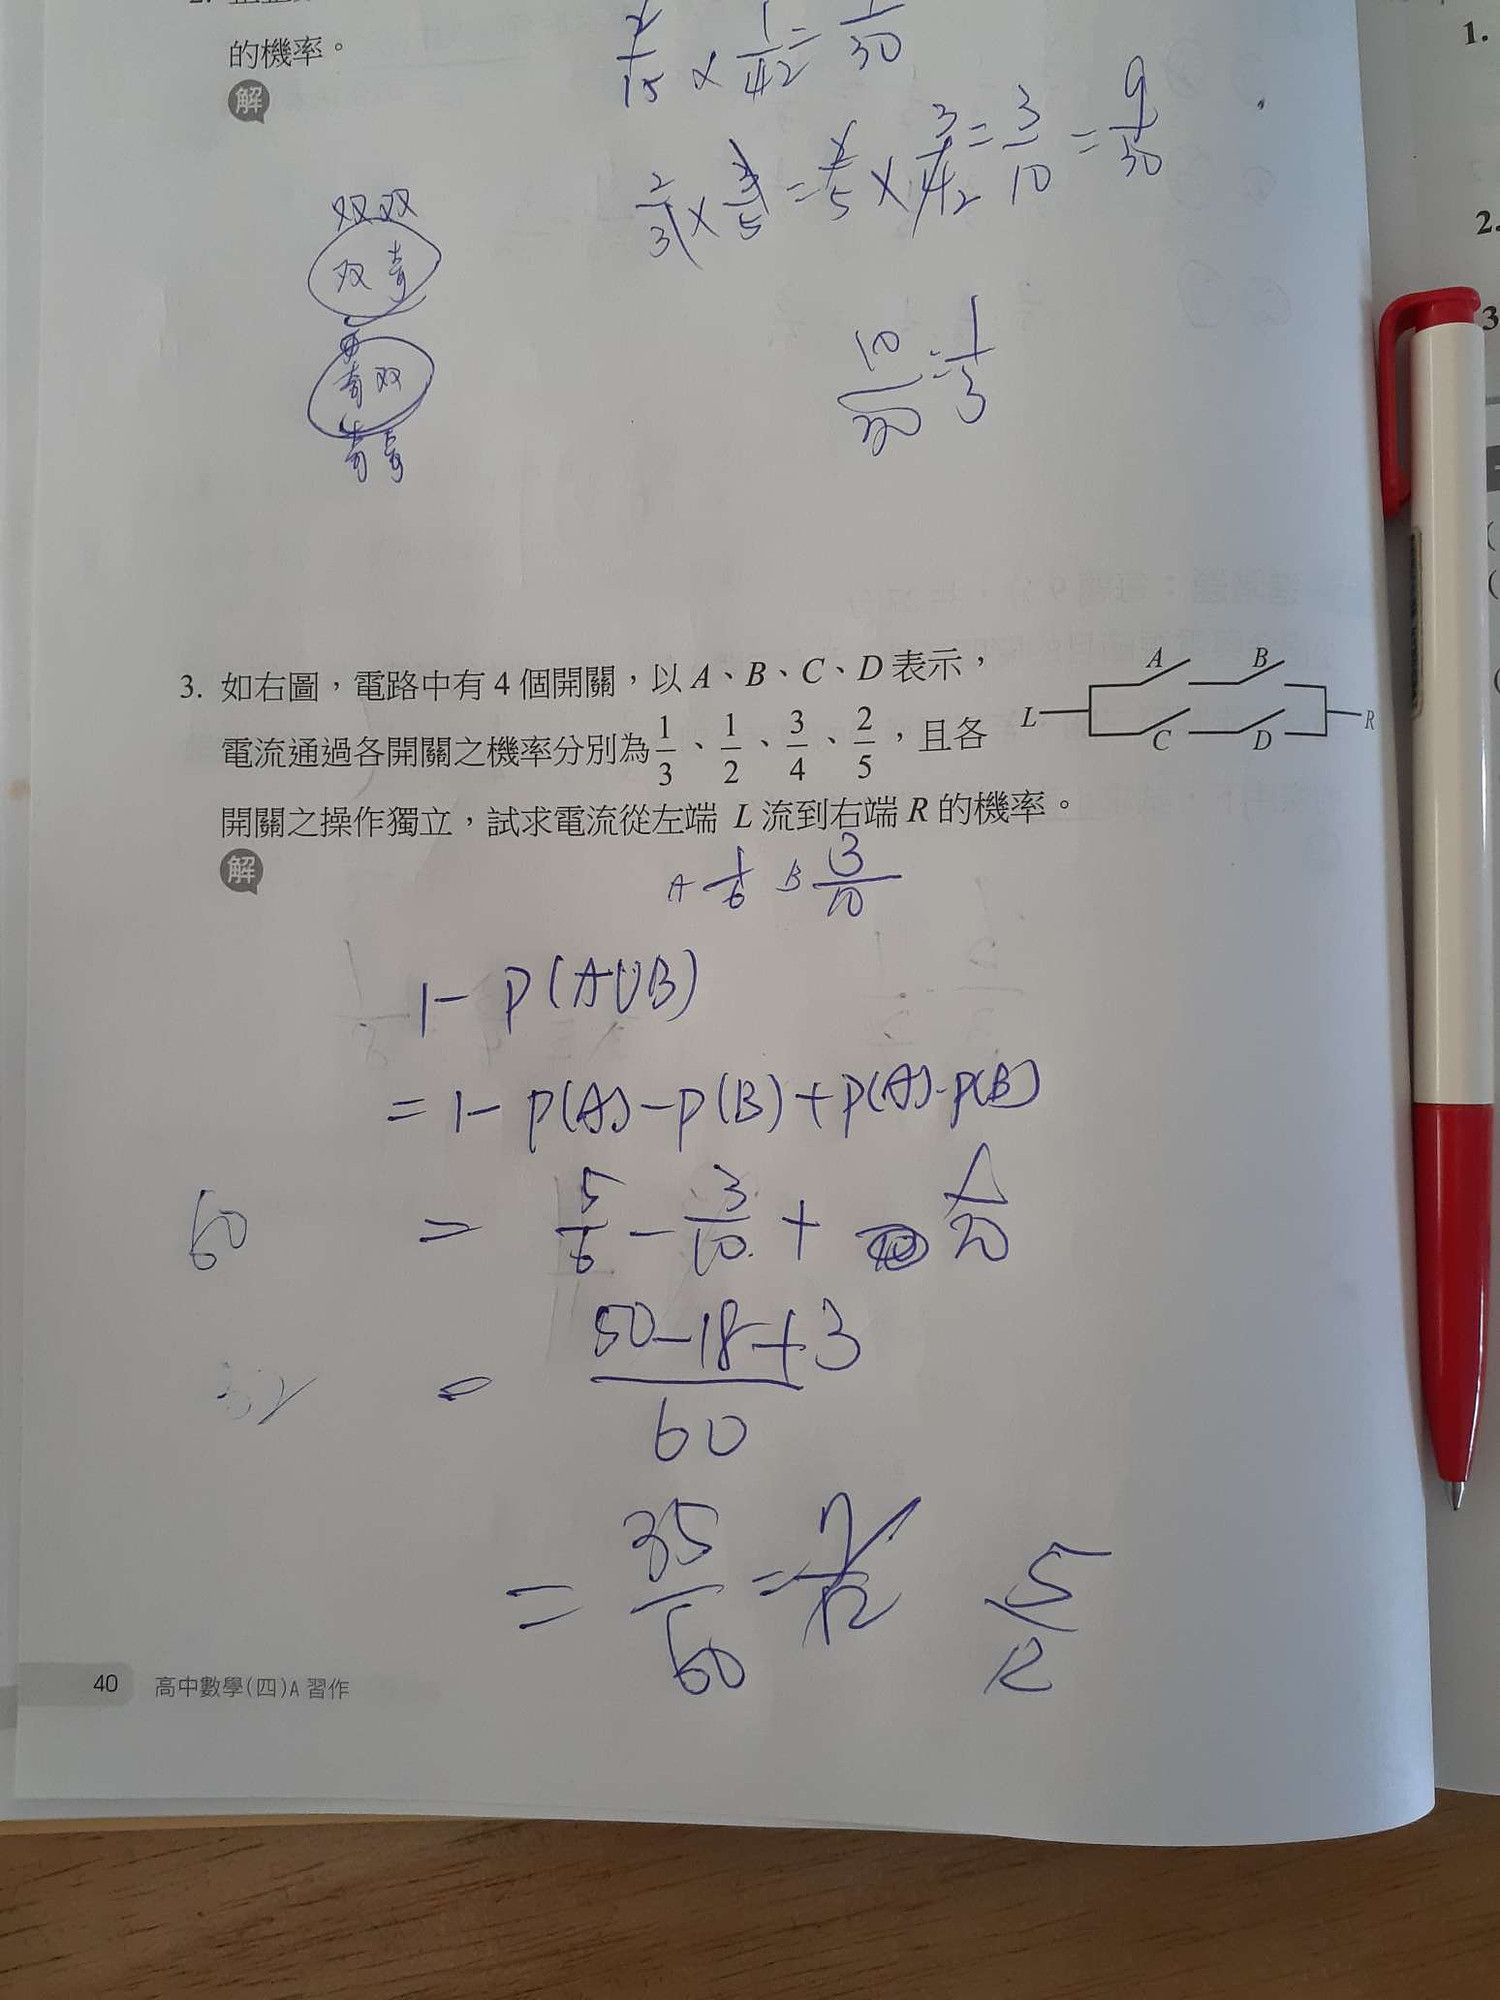 的機率。
解
15 × 1/42 = 1/30
2/3 × 3/5 = 2/5 × 3/42 = 3/10 = 9/30
双双
双青
青双
青青
10/30 = 1/3
3. 如右圖，電路中有 4 個開關，以 A、B、C、D 表示，
電流通過各開關之機率分別為 1/3、1/2、3/4、2/5，且各
開關之操作獨立，試求電流從左端 L 流到右端 R 的機率。
A B
L R
C D
解
A 1/6 B 3/10
1 - P(A∪B)
= 1 - P(A) - P(B) + P(A)·P(B)
60
= 5/6 - 3/10 + 1/20
32
= 50-18+3/60
= 35/60 = 7/12
5/12
40 高中數學(四)A 習作
1.
2.
3